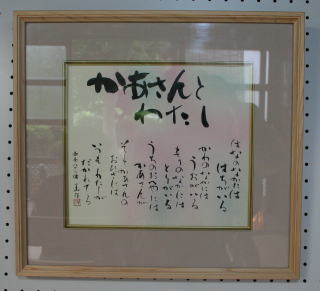 かあさんと
わたし
はなのなかには
はちがいる
かわのなかには
うおがいる
もりのなかには
とりがいる
うちのなかには
かあさんが
そのかあさんの
おひざには
いつもわたしが
だかれてる